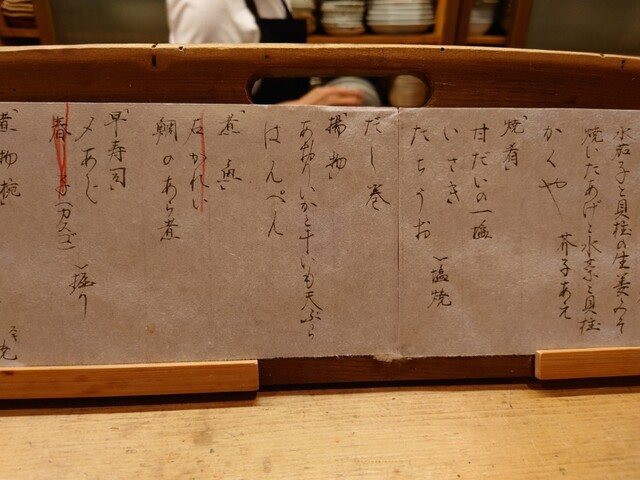 水茄子と貝柱の生姜みそ
焼いたあげと水菜と貝柱
芥子あえ
かくや
焼肴
甘だいの一塩
いさき
たちうお
塩焼
だし巻
揚物
あおりいかと干いも天ぷら
はんぺん
煮魚
石かれい
鯛のあら煮
早寿司
〆あじ
春子（カスゴ）
握り
煮物椀